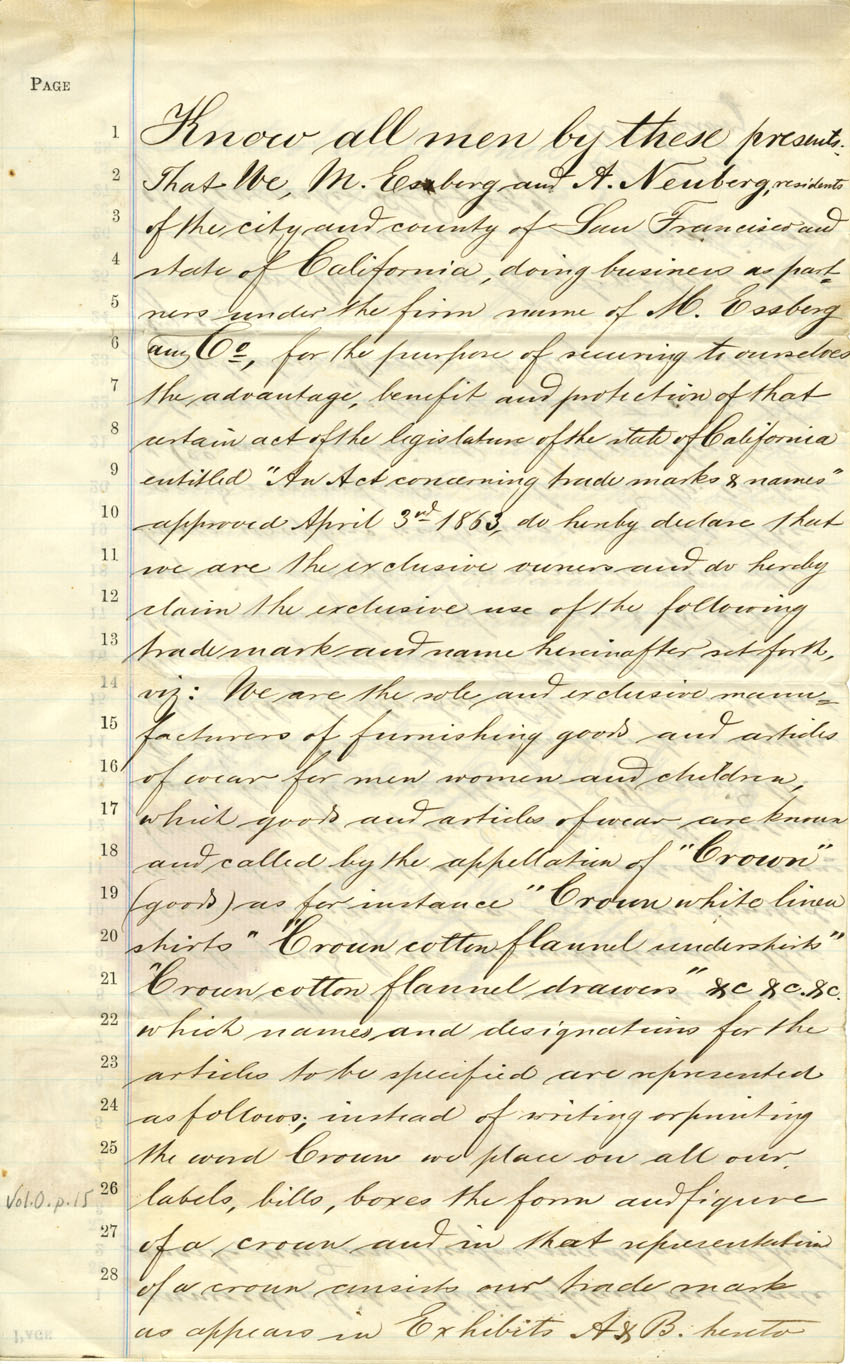 PAGE
1 Know all men by these presents.
2 That We, M. Essberg and A. Neuberg, residents
3 of the city and county of San Francisco and
4 state of California, doing business as part-
5 ners under the firm name of M. Essberg
6 and Co, for the purpose of securing to ourselves
7 the advantage, benefit and protection of that
8 certain act of the legislature of the state of California
9 entitled "An Act concerning trade marks & names"
10 approved April 3rd 1863, do hereby declare that
11 we are the exclusive owners and do hereby
12 claim the exclusive use of the following
13 trade mark and name hereinafter set forth,
14 viz: We are the sole and exclusive manu=
15 facturers of furnishing goods and articles
16 of wear for men women and children,
17 which goods and articles of wear are known
18 and called by the appellation of "Crown"
19 (goods) as for instance "Crown white linen
20 shirts" "Crown cotton flannel undershirts"
21 "Crown cotton flannel drawers" &c &c. &c.
22 which names and designations for the
23 articles to be specified are represented
24 as follows; instead of writing or printing
25 the word Crown we place on all our
Vol. O. p. 15 26 labels, bills, boxes the form and figure
27 of a crown and in that representation
28 of a crown consists our trade mark
as appears in Exhibits A & B. hereto